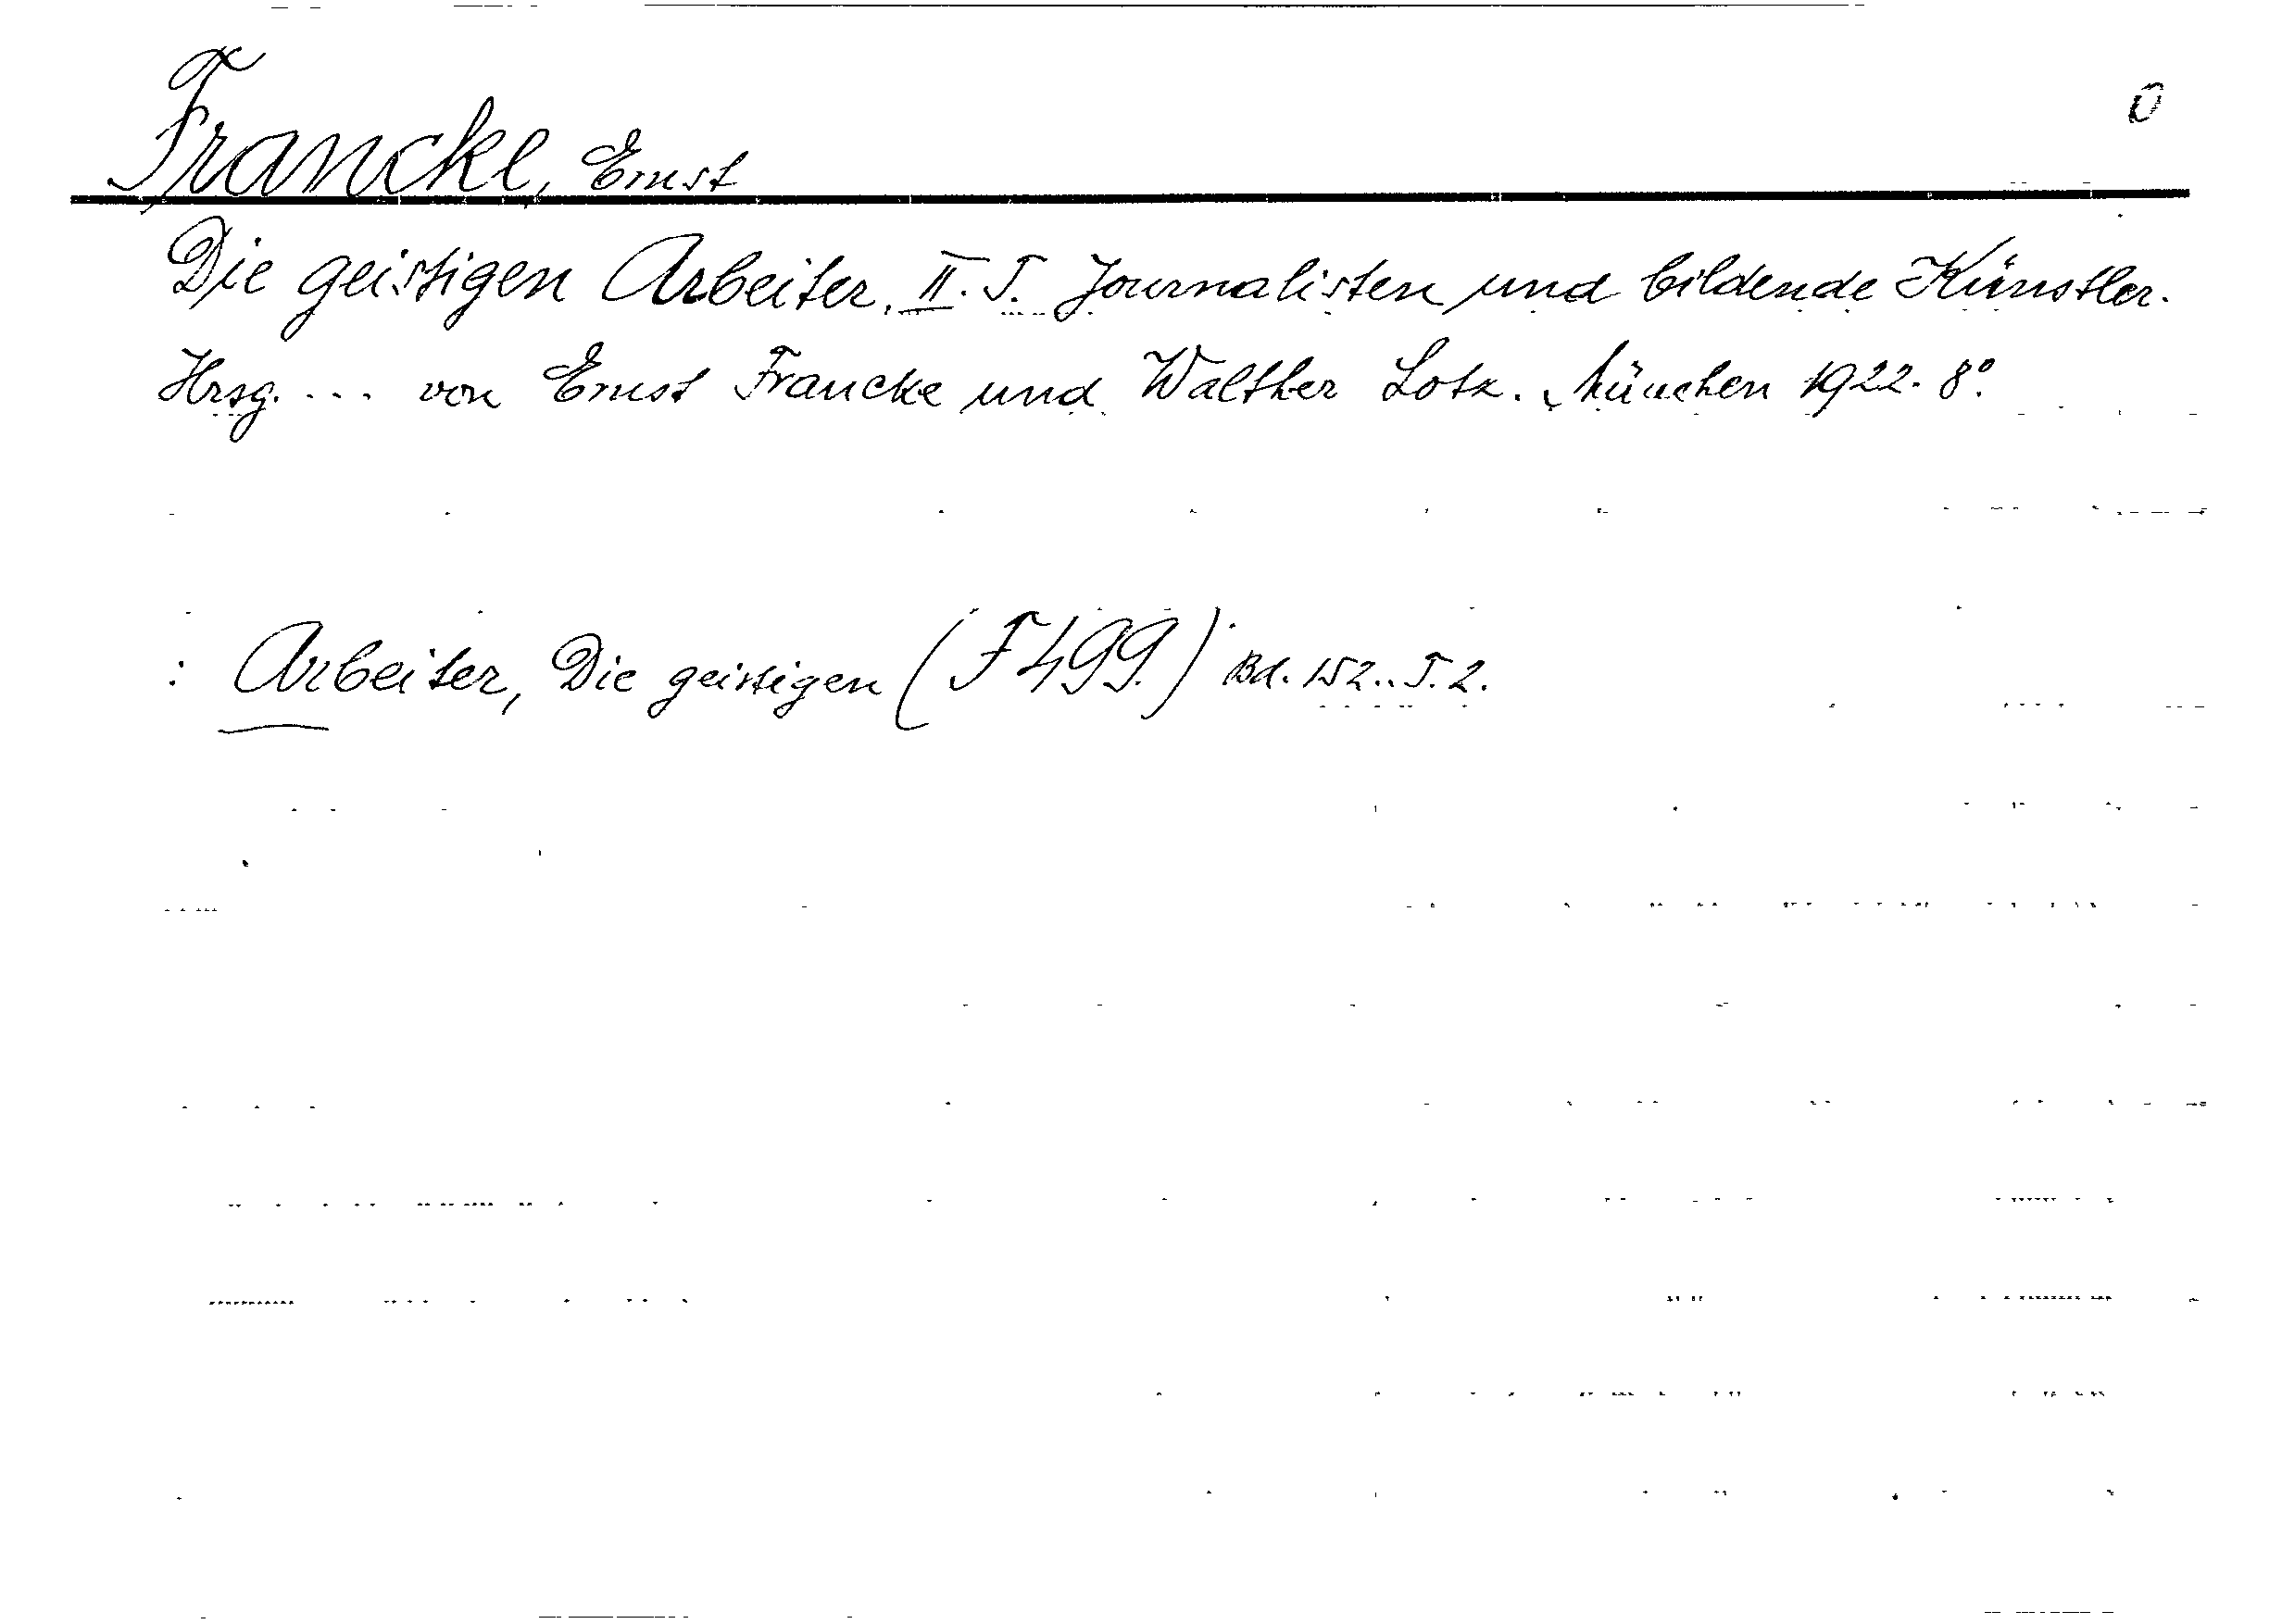 0
Francke, Ernst
Die geistigen Arbeiter. II. T. Journalisten und bildende Künstler.
Hrsg. ... von Ernst Francke und Walther Lotz. München 1922. 8°.
: Arbeiter, Die geistigen (F 499.) Bd. 152.. T. 2.